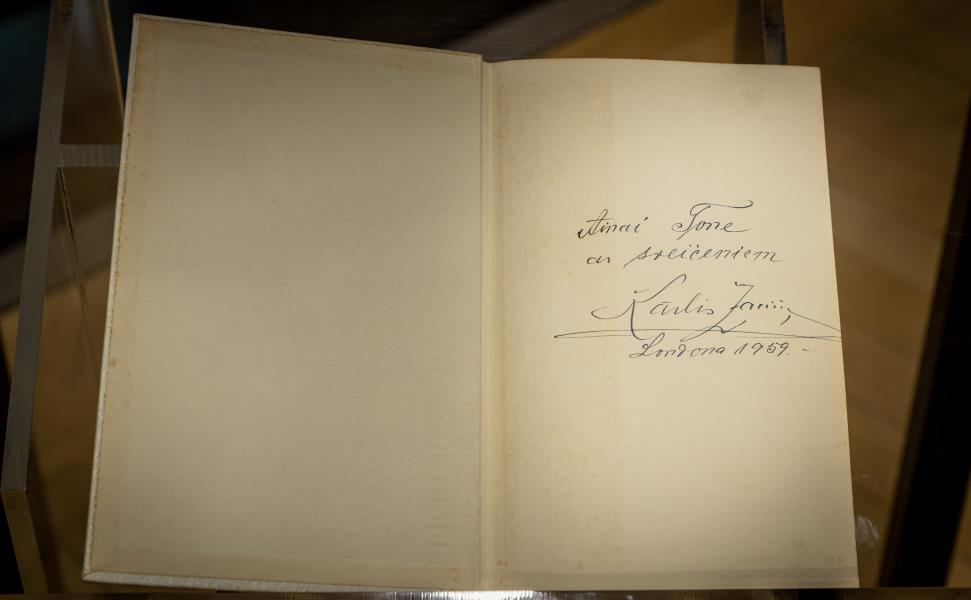 Ainai Tone
ar sveicieniem
Kārlis Zariņš
Londona 1959. -